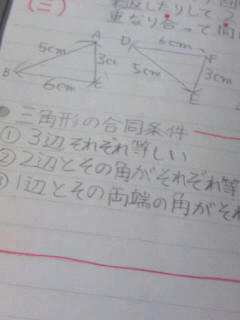 (三)
重なり合って
A
D
6cm
5cm
3c
5cm
F
3cm
B
6cm
C
E
三角形の合同条件
① 3辺それぞれ等しい
② 2辺とその角がそれぞれ等
1辺とその両端の角がそれ